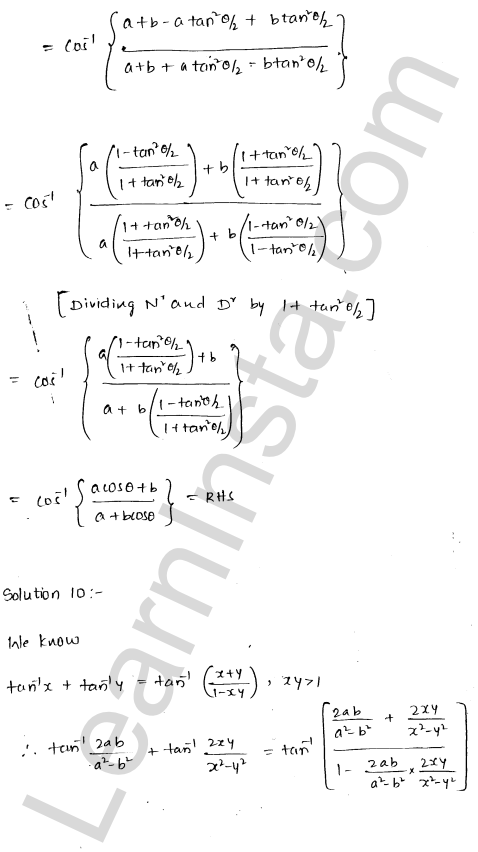 = cos⁻¹ { (a+b - a tan²θ/2 + b tan²θ/2) / (a+b + a tan²θ/2 - b tan²θ/2) }
= cos⁻¹ { [a ((1-tan²θ/2)/(1+tan²θ/2)) + b ((1+tan²θ/2)/(1+tan²θ/2))] / [a ((1+tan²θ/2)/(1+tan²θ/2)) + b ((1-tan²θ/2)/(1-tan²θ/2))] }
[Dividing Nʳ and Dʳ by 1+ tan²θ/2]
= cos⁻¹ { [a((1-tan²θ/2)/(1+tan²θ/2)) + b] / [a + b ((1-tan²θ/2)/(1+tan²θ/2))] }
= cos⁻¹ { (a cosθ + b) / (a + b cosθ) } = RHS
Solution 10:-
We know
tan⁻¹x + tan⁻¹y = tan⁻¹ ((x+y)/(1-xy)), xy>1
∴ tan⁻¹ 2ab/(a²-b²) + tan⁻¹ 2xy/(x²-y²) = tan⁻¹ [ (2ab/(a²-b²) + 2xy/(x²-y²)) / (1 - 2ab/(a²-b²) × 2xy/(x²-y²)) ]
LearnInsta.com